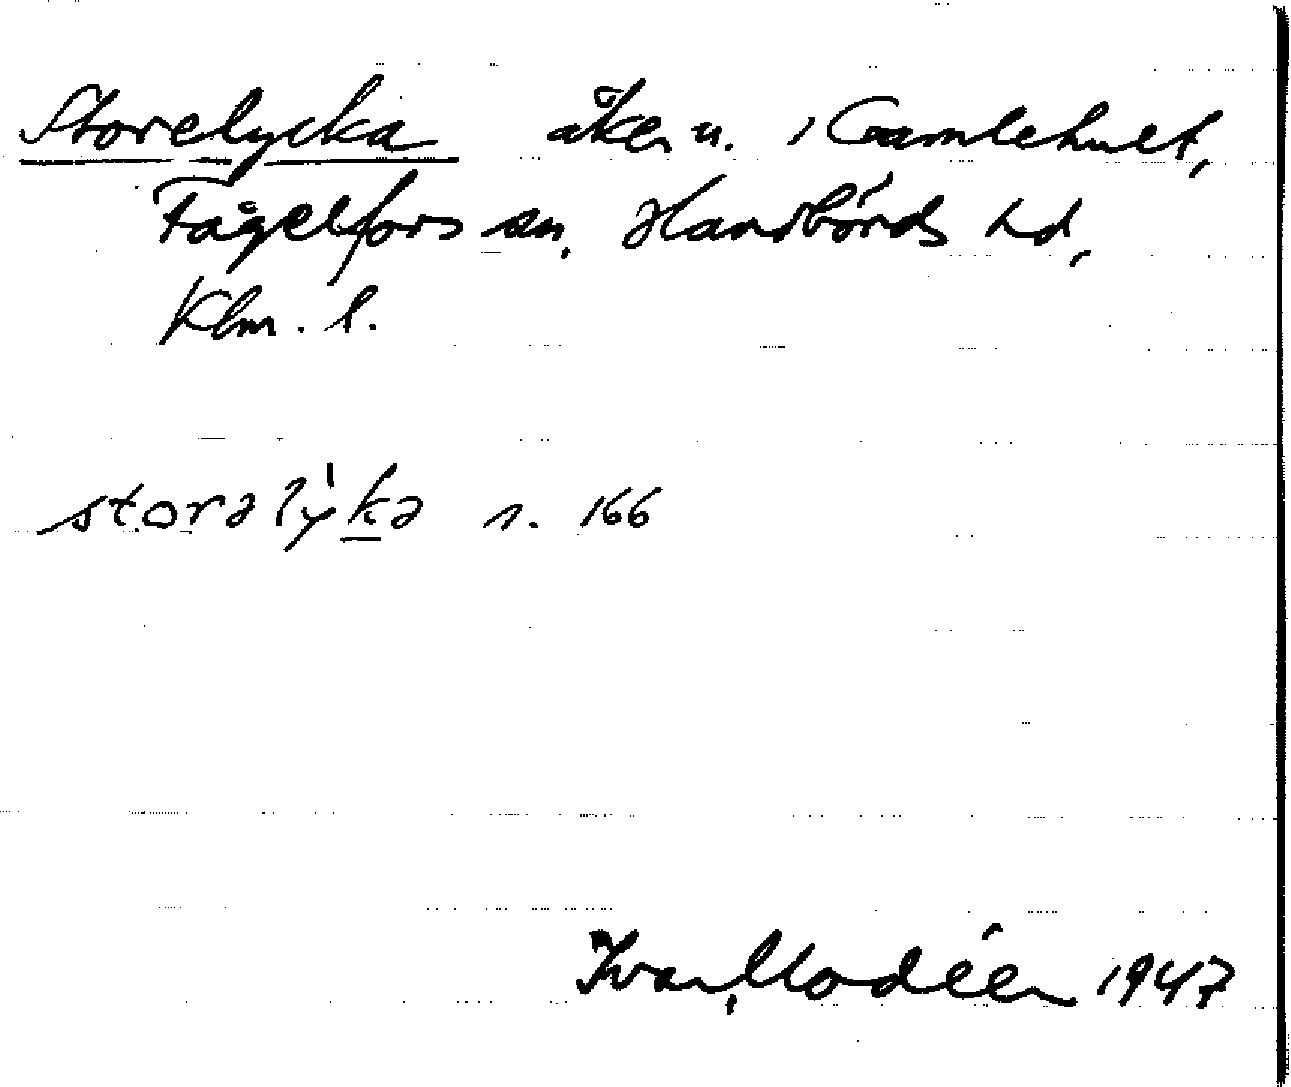 Storelycka åkern. i Gamlehult,
Fågelfors sn, Handbörds hd,
Klm. l.
storəlỳkə s. 166
Ivar Modéer 1947